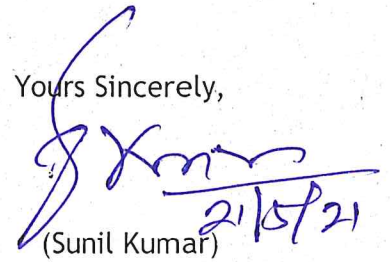 Yours Sincerely,
SKumar
21/5/21
(Sunil Kumar)